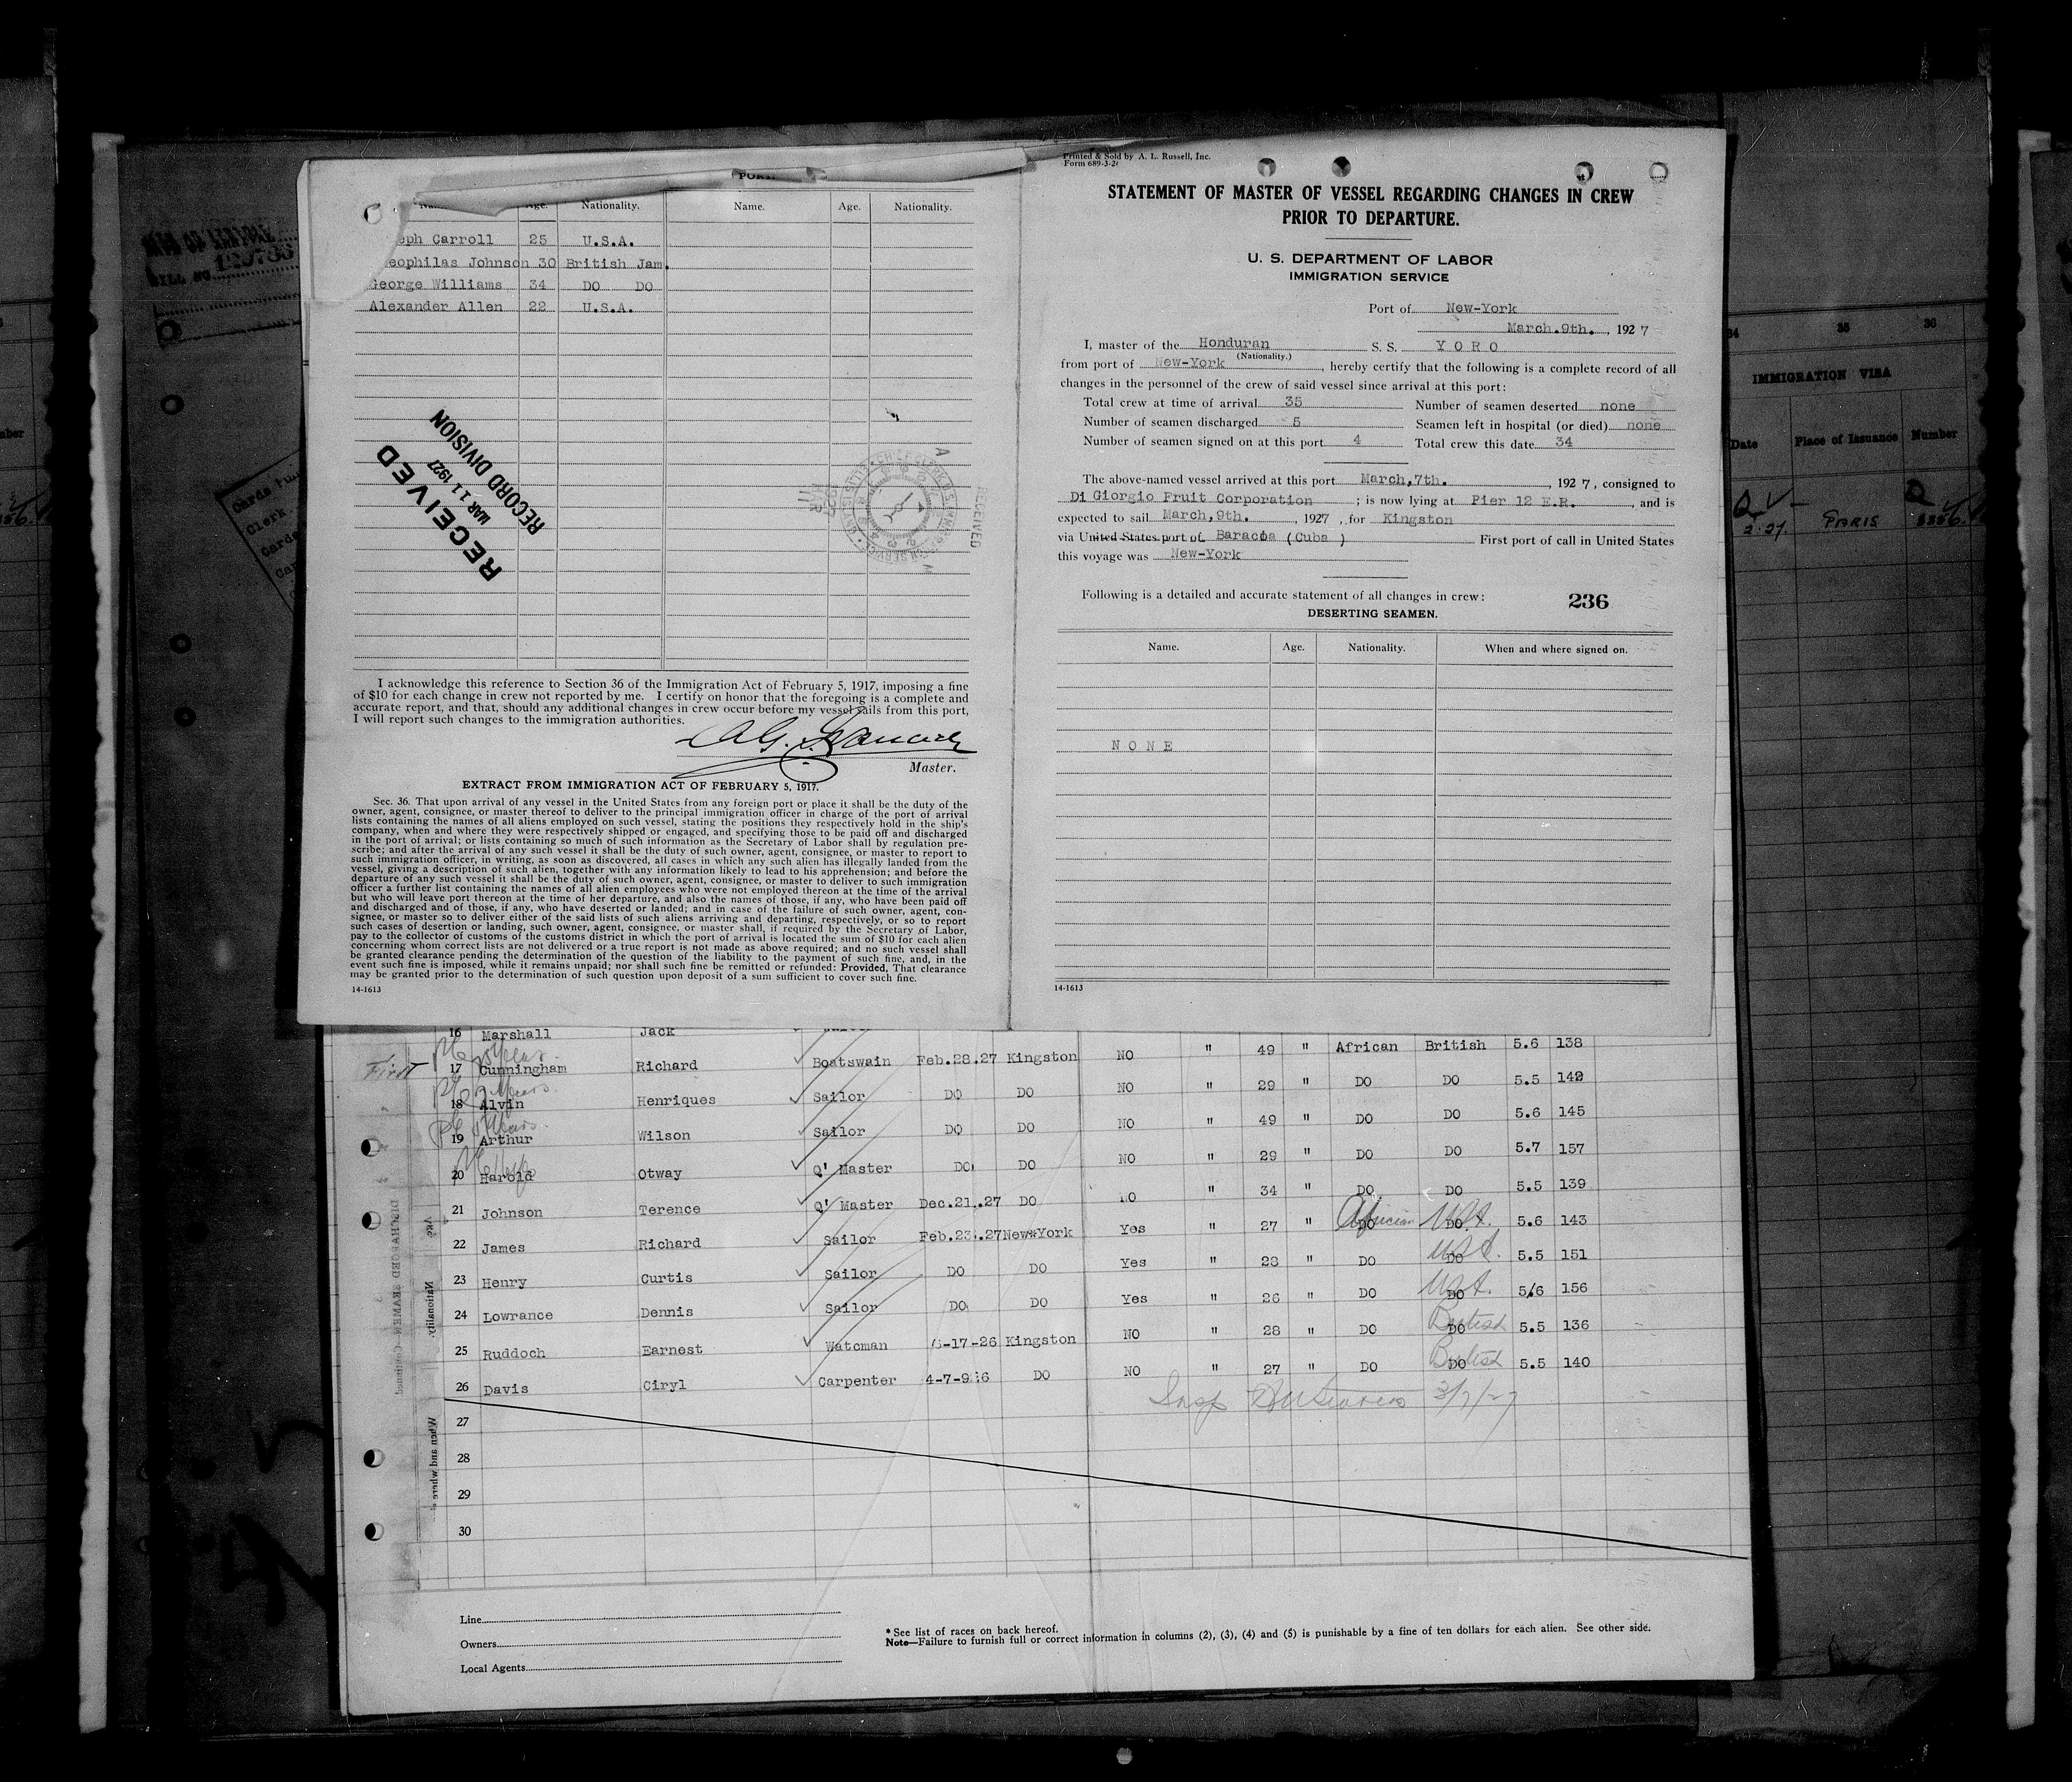 PORT
Name. Age. Nationality. Name. Age. Nationality.
eph Carroll 25 U.S.A.
eophilas Johnson 30 British Jam.
George Williams 34 DO DO
Alexander Allen 22 U.S.A.
RECEIVED
MAR 11 1927
RECORD DIVISION
RECEIVED
I acknowledge this reference to Section 36 of the Immigration Act of February 5, 1917, imposing a fine
of $10 for each change in crew not reported by me. I certify on honor that the foregoing is a complete and
accurate report, and that, should any additional changes in crew occur before my vessel sails from this port,
I will report such changes to the immigration authorities.
Master.
EXTRACT FROM IMMIGRATION ACT OF FEBRUARY 5, 1917.
Sec. 36. That upon arrival of any vessel in the United States from any foreign port or place it shall be the duty of the
owner, agent, consignee, or master thereof to deliver to the principal immigration officer in charge of the port of arrival
lists containing the names of all aliens employed on such vessel, stating the positions they respectively hold in the ship's
company, when and where they were respectively shipped or engaged, and specifying those to be paid off and discharged
in the port of arrival; or lists containing so much of such information as the Secretary of Labor shall by regulation pre-
scribe; and after the arrival of any such vessel it shall be the duty of such owner, agent, consignee, or master to report to
such immigration officer, in writing, as soon as discovered, all cases in which any such alien has illegally landed from the
vessel, giving a description of such alien, together with any information likely to lead to his apprehension; and before the
departure of any such vessel it shall be the duty of such owner, agent, consignee, or master to deliver to such immigration
officer a further list containing the names of all alien employees who were not employed thereon at the time of the arrival
but who will leave port thereon at the time of her departure, and also the names of those, if any, who have been paid off
and discharged and of those, if any, who have deserted or landed; and in case of the failure of such owner, agent, con-
signee, or master so to deliver either of the said lists of such aliens arriving and departing, respectively, or so to report
such cases of desertion or landing, such owner, agent, consignee, or master shall, if required by the Secretary of Labor,
pay to the collector of customs of the customs district in which the port of arrival is located the sum of $10 for each alien
concerning whom correct lists are not delivered or a true report is not made as above required; and no such vessel shall
be granted clearance pending the determination of the question of the liability to the payment of such fine, and, in the
event such fine is imposed, while it remains unpaid; nor shall such fine be remitted or refunded: Provided, That clearance
may be granted prior to the determination of such question upon deposit of a sum sufficient to cover such fine.
14-1613
Printed & Sold by A. L. Russell, Inc.
Form 689-3-26
STATEMENT OF MASTER OF VESSEL REGARDING CHANGES IN CREW
PRIOR TO DEPARTURE.
U. S. DEPARTMENT OF LABOR
IMMIGRATION SERVICE
Port of New-York
March.9th. , 192 7
I, master of the Honduran S. S. Y O R O
(Nationality.)
from port of New-York , hereby certify that the following is a complete record of all
changes in the personnel of the crew of said vessel since arrival at this port:
Total crew at time of arrival 35 Number of seamen deserted none
Number of seamen discharged 5 Seamen left in hospital (or died) none
Number of seamen signed on at this port 4 Total crew this date 34
The above-named vessel arrived at this port March,7th. , 192 7 , consigned to
Di Giorgio Fruit Corporation ; is now lying at Pier 12 E.R. , and is
expected to sail March,9th. , 1927 , for Kingston
via United States port of Baracoa (Cuba ) First port of call in United States
this voyage was New-York
Following is a detailed and accurate statement of all changes in crew: 236
DESERTING SEAMEN.
Name. Age. Nationality. When and where signed on.
N O N E
14-1613
16 Marshall Jack
First 17 Cunningham Richard Boatswain Feb.28.27 Kingston NO " 49 " African British 5.6 138
18 Alvin Henriques Sailor DO DO NO " 29 " DO DO 5.5 142
19 Arthur Wilson Sailor DO DO NO " 49 " DO DO 5.6 145
20 Harold Otway Q' Master DO DO NO " 29 " DO DO 5.7 157
21 Johnson Terence Q' Master Dec.21.27 DO NO " 34 " DO DO 5.5 139
22 James Richard Sailor Feb.23.27 New-York Yes " 27 " DO African DO U.S.A. 5.6 143
23 Henry Curtis Sailor DO DO Yes " 28 " DO DO U.S.A. 5.5 151
24 Lowrance Dennis Sailor DO DO Yes " 26 " DO DO U.S.A. 5/6 156
25 Ruddoch Earnest Watcman 6-17-26 Kingston NO " 28 " DO DO British 5.5 136
26 Davis Ciryl Carpenter 4-7-926 DO NO " 27 " DO DO British 5.5 140
Insp 3/7/27
27
28
29
30
Line
Owners
Local Agents
* See list of races on back hereof.
Note—Failure to furnish full or correct information in columns (2), (3), (4) and (5) is punishable by a fine of ten dollars for each alien. See other side.
34 35 36
IMMIGRATION VISA
Date Place of Issuance Number
PARIS